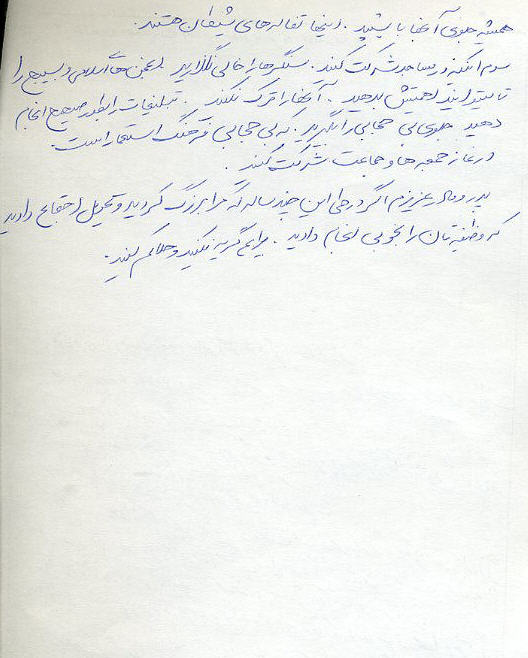 همیشه جلوی آنها بایستید. اینها تفاله های شیطان هستند.
سوم اینکه در مساجد شرکت کنید. سنگرها را خالی نگذارید انجمن های اسلامی و بسیج را
تا میتوانید اهمیتش بدهید. آنها را ترک نکنید. تبلیغات را بطور صحیح انجام
دهید جلوی بی حجابی را بگیرید. که بی حجابی فرهنگ استعمار است.
در نماز جمعه ها و جماعت شرکت کنید.
پدر و مادر عزیزم اگر در طی این چند ساله که مرا بزرگ کردید و تحویل اجتماع دادید
که وظیفه تان را بخوبی انجام دادید. برایم گریه نکنید و حلالم کنید.